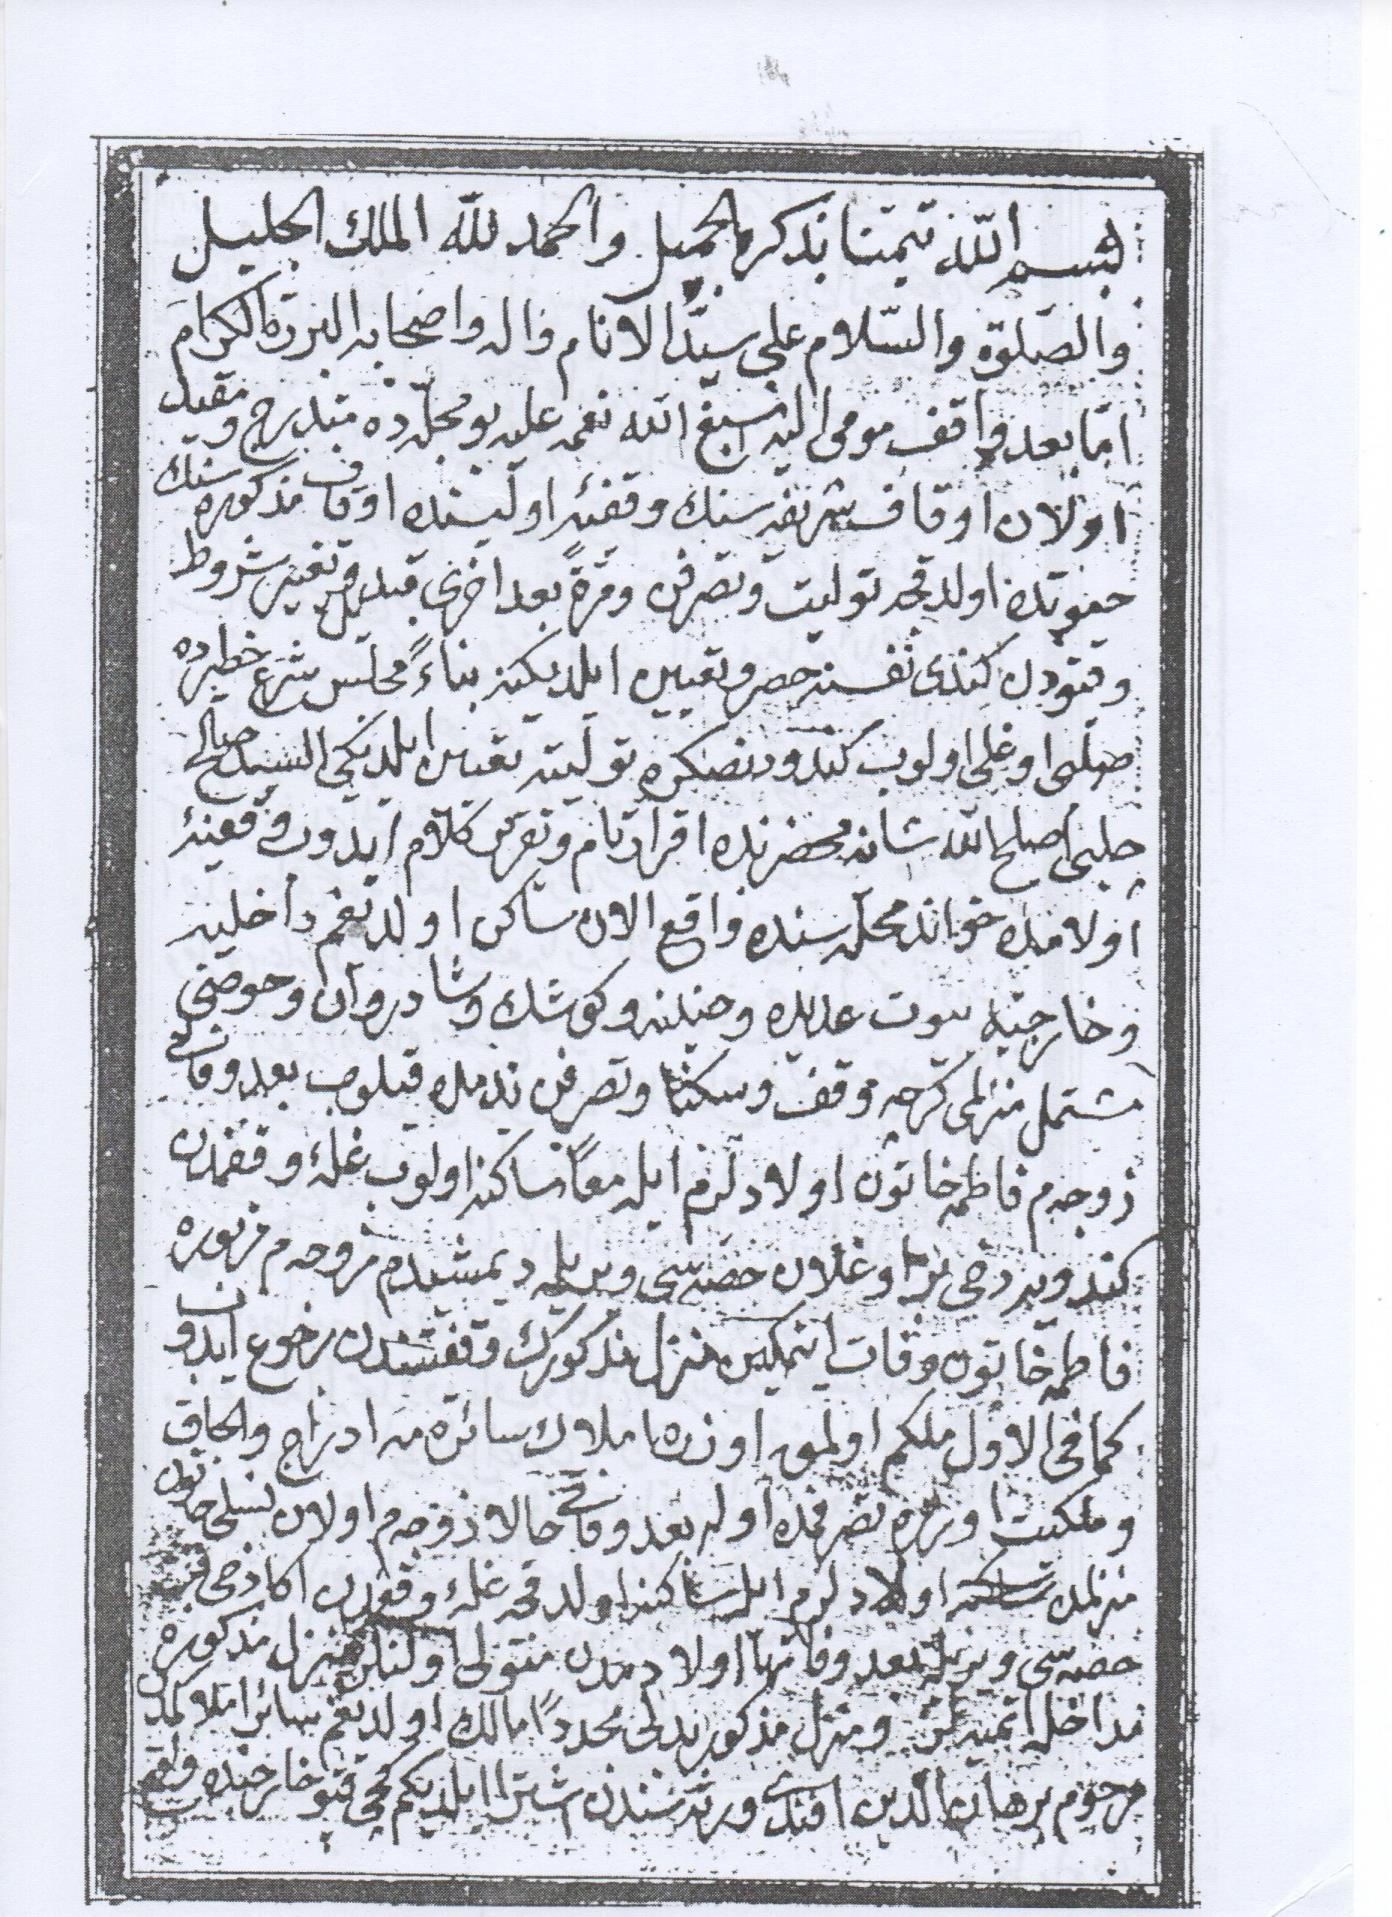 بسم الله تيمنا بذكره الجميل والحمد لله الملك الجليل
والصلوة والسلام على سيد الانام واله واصحابه البررة الكرام
اما بعد واقف مومى اليه اسبغ الله نعمه عليه بو محلده مندرج ومقيد
اولان اوقاف شريفه سنك وقفيه اوليسنده اوقاف مذكوره سنك
حيوتده اولدقجه توليت وتصرفن ومرة بعد اخرى تبديل وتغيير شروط
وقيودن كندى نفسنه حصر وتعيين ايلديكنه بناء مجلس شرع خطيرده
صلبى اوغلى اولوب كندودنصكره توليته تعيين ايلديكى السيد صالح
جلبى اصلح الله شانه محضرنده اقرار تام وتقرير كلام ايدوب وقفيه
اولامده خواند محله سنده واقع الان ساكن اولديغم داخليه
وخارجيه بيوت عديده وجنينه وكوشك وشادروان وحوضى
مشتمل منزلمى كرجه وقف وسكنا وتصرفن قيلوب بعد وفاتى
زوجه م فاطمه خاتون اولادلرم ايله معا ساكنه اولوب غله وقفمدن
كندويه دخى بر اوغلان حصه سى ويريله ديمشيدم زوجه م مزبوره
فاطمه خاتون وفات ايتمكين منزل مذكورك وقفيتندن رجوع ايدوب
كما فى الاول ملكم اولمق اوزره املاك سائره مه ادراج والحاق
وملكيت اوزره تصرفمده اوله بعد وفاتى حالا زوجه م اولان نسلى خاتون
منزلمده اولادلرم ايله ساكنه اولدقجه غله وقفدن اكا دخى
حصه سى ويريله بعد وفاتها اولادمدن متولى اولنلر منزل مذكوره
مداخله ايتميه لر ومنزل مذكور بدلى مجددا مالك اولديغم سائر املاكمدن
مرحوم برهان الدين افندى ورثه سندن اشترا ايلديكم قپو خارجنده واقع